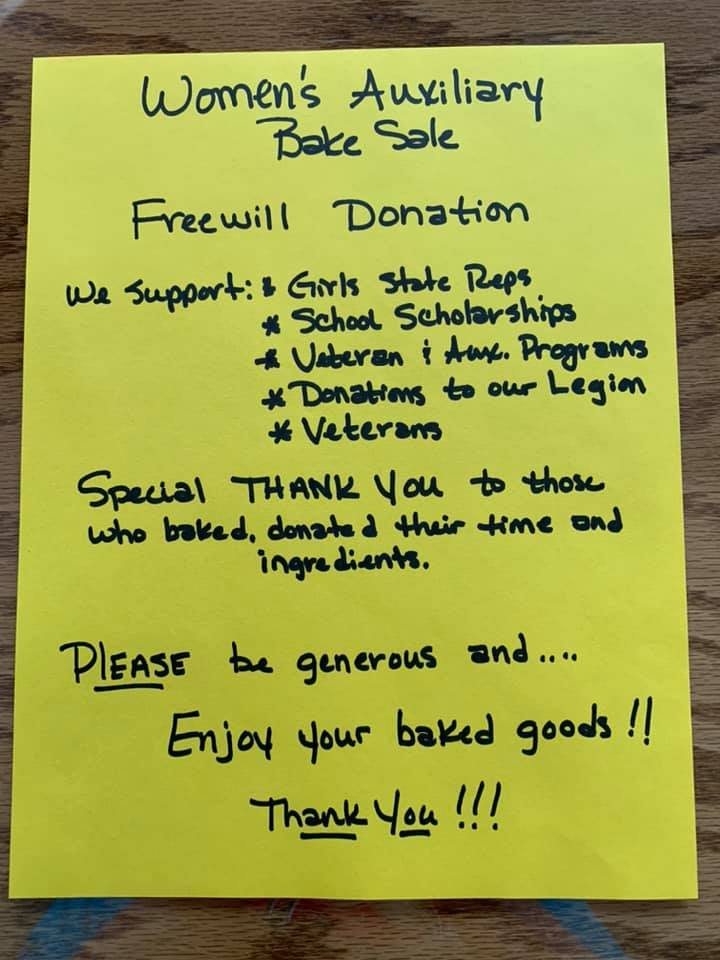 Women's Auxiliary
Bake Sale
Freewill Donation
We Support: * Girls State Reps
* School Scholarships
* Veteran & Aux. Programs
* Donations to our Legion
* Veterans
Special THANK YOU to those
who baked, donated their time and
ingredients.
PLEASE be generous and....
Enjoy your baked goods!!
Thank You!!!